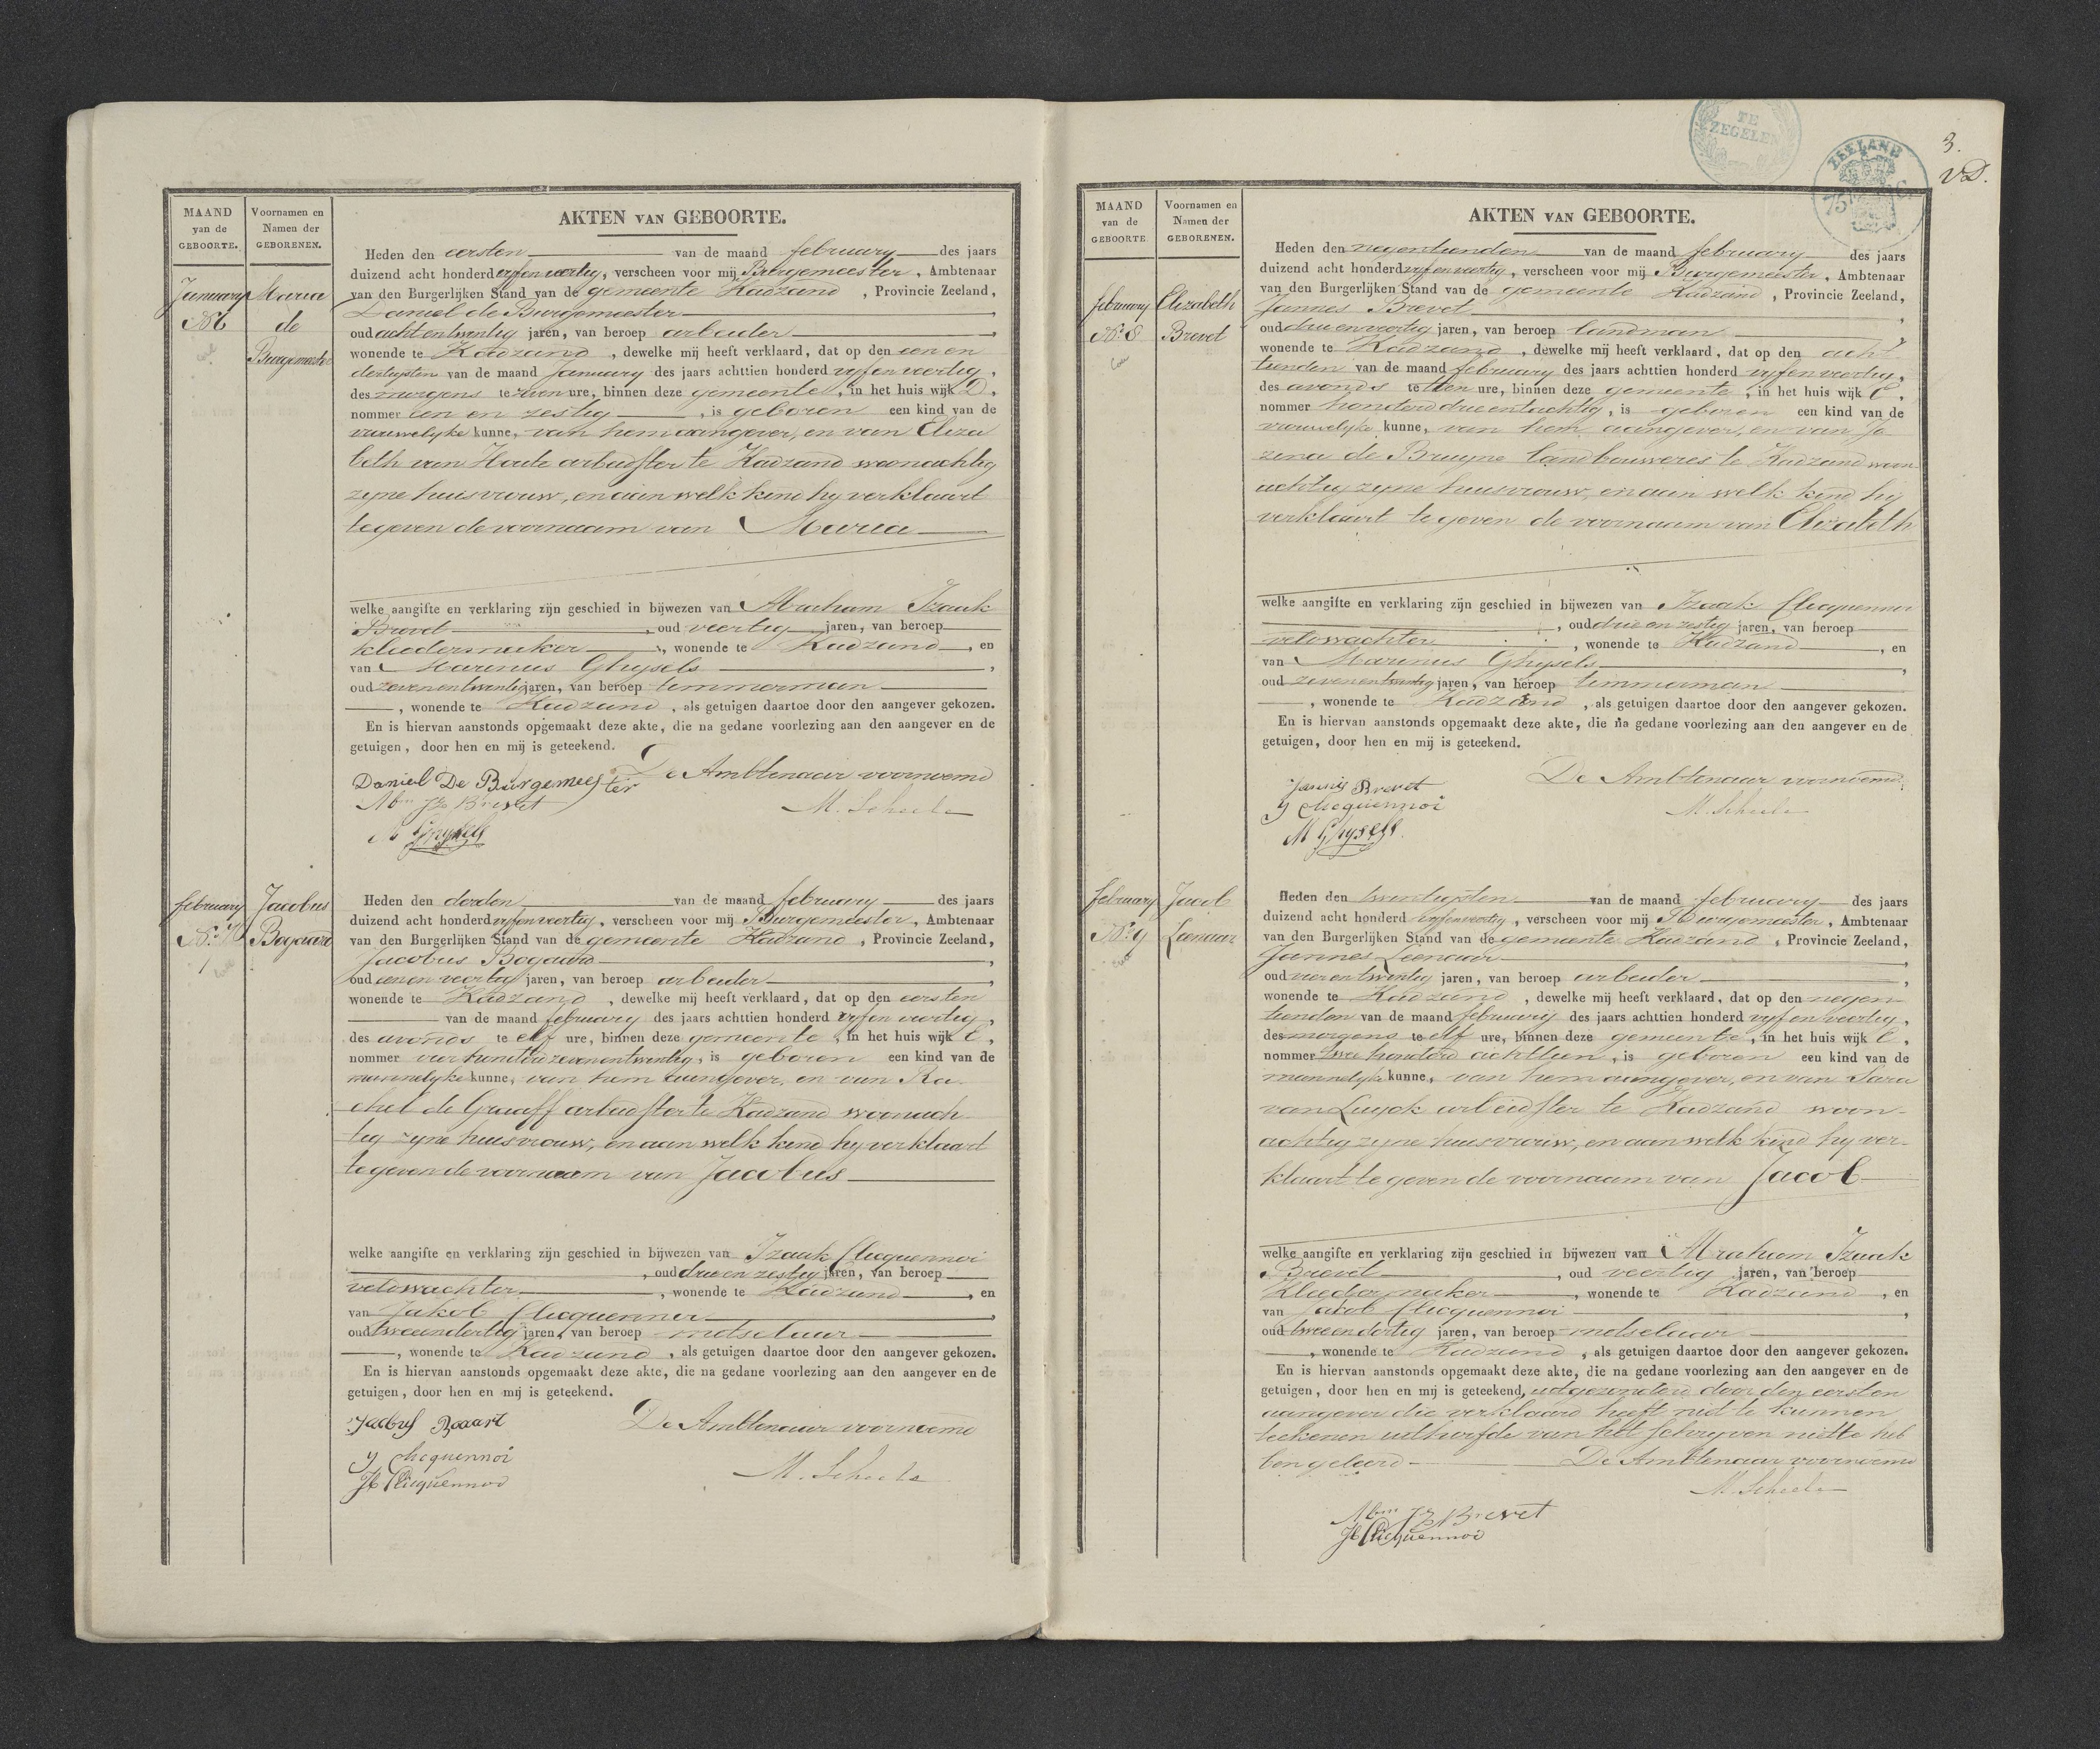 MAAND
van de
GEBOORTE.
Voornamen en
Namen der
GEBORENEN.
AKTEN VAN GEBOORTE.
January
No 6
Maria
de
Burgemeester
Heden den eersten van de maand february des jaars
duizend acht honderd vyfenveertig, verscheen voor mij Burgemeester, Ambtenaar
van den Burgerlijken Stand van de gemeente Kadzand, Provincie Zeeland,
Daniel de Burgemeester,
oud achtentwentig jaren, van beroep arbeider,
wonende te Kadzand, dewelke mij heeft verklaard, dat op den een en
dertigsten van de maand January des jaars achttien honderd vyfenveertig,
des morgens te zeven ure, binnen deze gemeente, in het huis wijk D,
nommer een en zestig, is geboren een kind van de
vrouwelyke kunne, van hem aangever, en van Eliza
beth van Houte arbeidster te Kadzand woonachtig
zyne huisvrouw, en aan welk kind hy verklaart
te geven de voornaam van Maria
welke aangifte en verklaring zijn geschied in bijwezen van Abraham Izaak
Brevet, oud veertig jaren, van beroep
kleedermaker, wonende te Kadzand, en
van Marinus Ghysels,
oud zevenentwentig jaren, van beroep temmerman
, wonende te Kadzand, als getuigen daartoe door den aangever gekozen.
En is hiervan aanstonds opgemaakt deze akte, die na gedane voorlezing aan den aangever en de
getuigen, door hen en mij is geteekend.
De Ambtenaar voornoemd
Daniel De Burgemeester
Abm Iz Brevet
M. Scheele
M Ghysels
february
No 7
Jacobus
Bogaard
Heden den derden van de maand february des jaars
duizend acht honderd vyfenveertig, verscheen voor mij Burgemeester, Ambtenaar
van den Burgerlijken Stand van de gemeente Kadzand, Provincie Zeeland,
Jacobus Bogaard,
oud eenenveertig jaren, van beroep arbeider,
wonende te Kadzand, dewelke mij heeft verklaard, dat op den eersten
van de maand february des jaars achttien honderd vyfenveertig,
des avonds te elf ure, binnen deze gemeente, in het huis wijk E,
nommer vierhonderd zevenentwentig, is geboren een kind van de
mannelyke kunne, van hem aangever, en van Ra-
chel de Graaff arbeidster te Kadzand woonach-
tig zyne huisvrouw, en aan welk kind hy verklaart
te geven de voornaam van Jacobus
welke aangifte en verklaring zijn geschied in bijwezen van Izaak Clicquennoi
, oud drie en zestig jaren, van beroep
veldwachter, wonende te Kadzand, en
van Jakob Clicquennoi,
oud tweeendertig jaren, van beroep metselaar
, wonende te Kadzand, als getuigen daartoe door den aangever gekozen.
En is hiervan aanstonds opgemaakt deze akte, die na gedane voorlezing aan den aangever en de
getuigen, door hen en mij is geteekend.
Jacbus Boaart
De Ambtenaar voornoemd
J Clicquennoi
M. Scheele
Jb Clicquennoi
TE
ZEGELEN
ZEELAND
75
3.
VD.
MAAND
van de
GEBOORTE
Voornamen en
Namen der
GEBORENEN.
AKTEN VAN GEBOORTE.
february
No 8
Elizabeth
Brevet
Heden den negentienden van de maand february des jaars
duizend acht honderd vyfenveertig, verscheen voor mij Burgemeester, Ambtenaar
van den Burgerlijken Stand van de gemeente Kadzand, Provincie Zeeland,
Jannes Brevet,
oud drieenveertig jaren, van beroep landman
wonende te Kadzand, dewelke mij heeft verklaard, dat op den acht
tienden van de maand february des jaars achttien honderd vyfenveertig,
des avonds te tien ure, binnen deze gemeente, in het huis wijk E,
nommer honderd drieentachtig, is geboren een kind van de
vrouwelyke kunne, van hem aangever, en van Jo
zina de Bruyne landbouweres te Kadzand woon
achtig zyne huisvrouw, en aan welk kind hy
verklaart te geven de voornaam van Elizabeth
welke aangifte en verklaring zijn geschied in bijwezen van Izaak Clicquennoi
, oud drie en zestig jaren, van beroep
veldwachter, wonende te Kadzand, en
van Marinus Ghysels,
oud zevenentwentig jaren, van beroep timmerman
, wonende te Kadzand, als getuigen daartoe door den aangever gekozen.
En is hiervan aanstonds opgemaakt deze akte, die na gedane voorlezing aan den aangever en de
getuigen, door hen en mij is geteekend.
De Ambtenaar voornoemd
Jannis Brevet
J Clicquennoi
M. Scheele
M Ghysels.
february
No 9
Jacob
Leenaar
Heden den twentigsten van de maand february des jaars
duizend acht honderd vyfenveertig, verscheen voor mij Burgemeester, Ambtenaar
van den Burgerlijken Stand van de gemeente Kadzand, Provincie Zeeland,
Jannes Leenaar,
oud vierentwentig jaren, van beroep arbeider,
wonende te Kadzand, dewelke mij heeft verklaard, dat op den negen-
tienden van de maand february des jaars achttien honderd vyfenveertig,
des morgens te elf ure, binnen deze gemeente, in het huis wijk E,
nommer twee honderd achttien, is geboren een kind van de
mannelyke kunne, van hem aangever, en van Sara
van Luyck arbeidster te Kadzand woon-
achtig zyne huisvrouw, en aan welk kind hy ver-
klaart te geven de voornaam van Jacob
welke aangifte en verklaring zijn geschied in bijwezen van Abraham Izaak
Brevet, oud veertig jaren, van beroep
Kleedermaker, wonende te Kadzand, en
van Jacob Clicquennoi,
oud tweeendertig jaren, van beroep metselaar
, wonende te Kadzand, als getuigen daartoe door den aangever gekozen.
En is hiervan aanstonds opgemaakt deze akte, die na gedane voorlezing aan den aangever en de
getuigen, door hen en mij is geteekend, uitgezonderd door den eersten
aangever die verklaard heeft niet te kunnen
teekenen uithoofde van het schryven niet te heb
ben geleerd De Ambtenaar voornoemd
M. Scheele
Abm Iz Brevet
Jb Clicquennoi